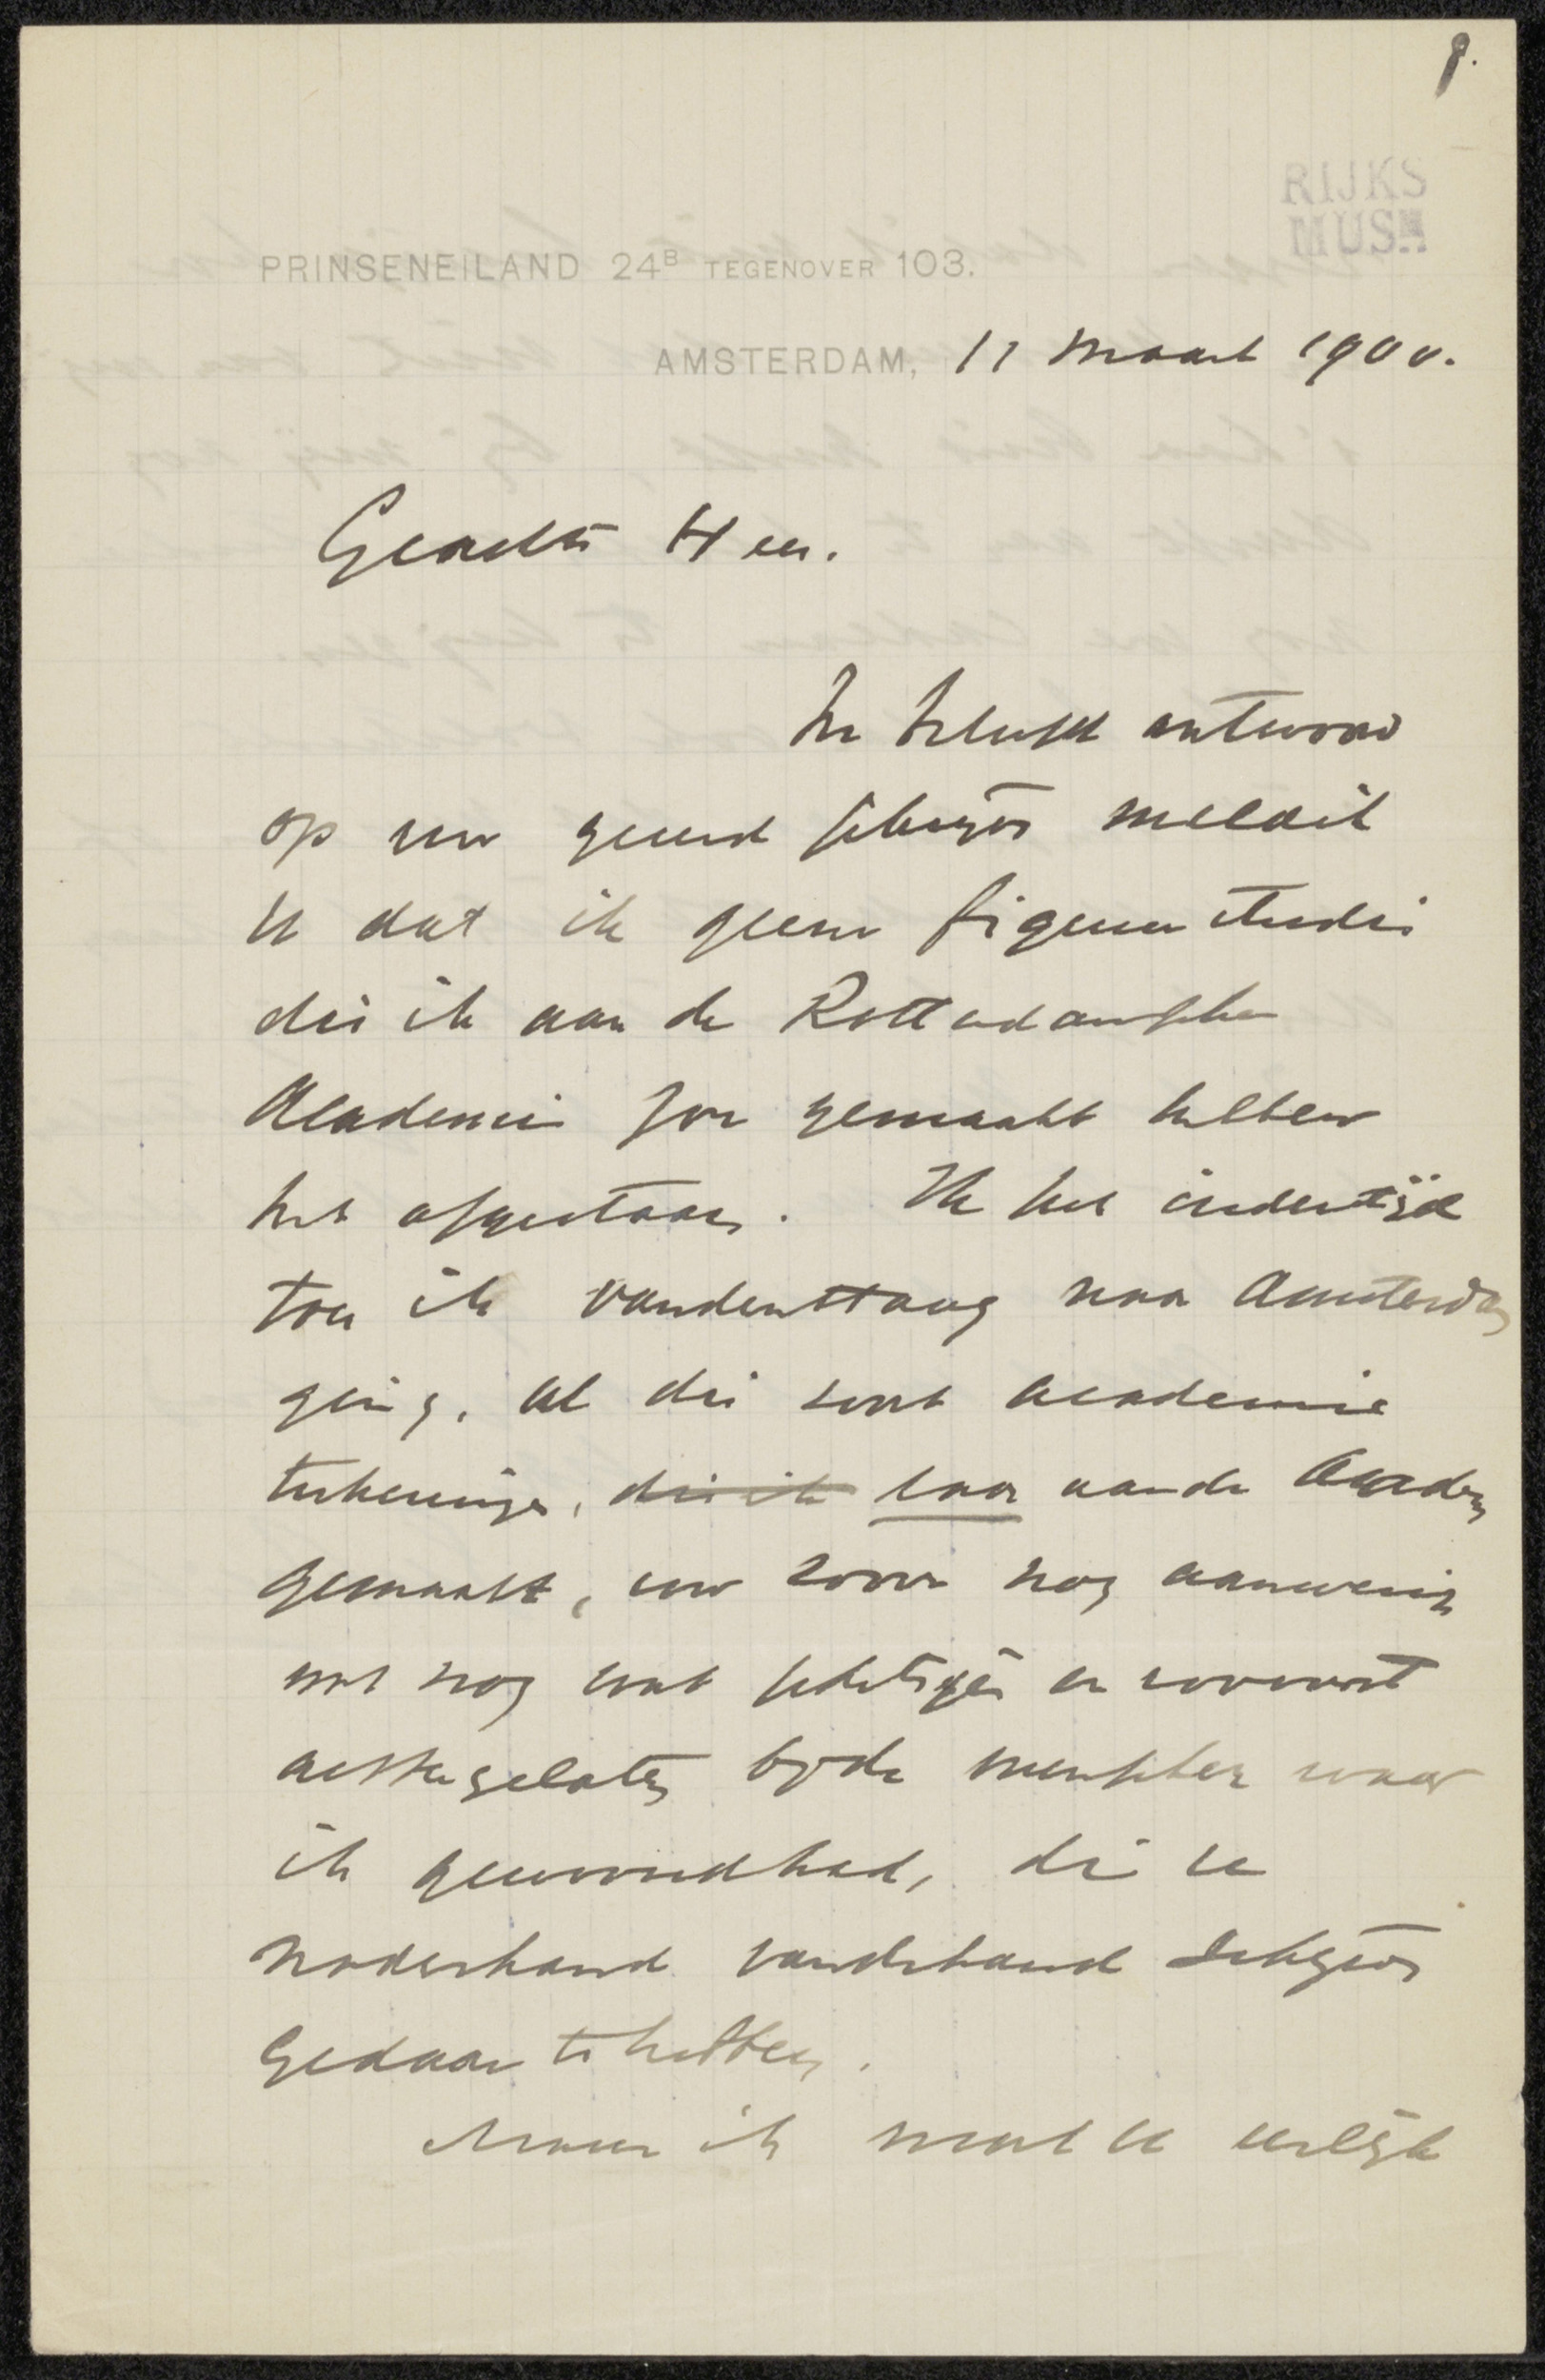 8.
RIJKS
MUSM
PRINSENEILAND 24B TEGENOVER 103.
AMSTERDAM, 11 Maart 1900.
Geachte Heer.
In beleefd antwoord
op uw geeerd schrijven meld ik
U dat ik geene figuurstudie
die ik aan de Rotterdamsche
Academie zou gemaakt hebben
heb afgestaan. Ik heb indertijd
toen ik van den Haag naar Amsterdam
ging, al die soort academie
tekeningen, die ik daar aan de Academ
gemaakt, voor zoover nog aanwezig
met nog wat schetsjes en zoovoort
achtergelaten bij de menschen waar
ik gewoond had, die ze
naderhand van de hand schijnen
gedaan te hebben.
Maar ik moet U eerlijk